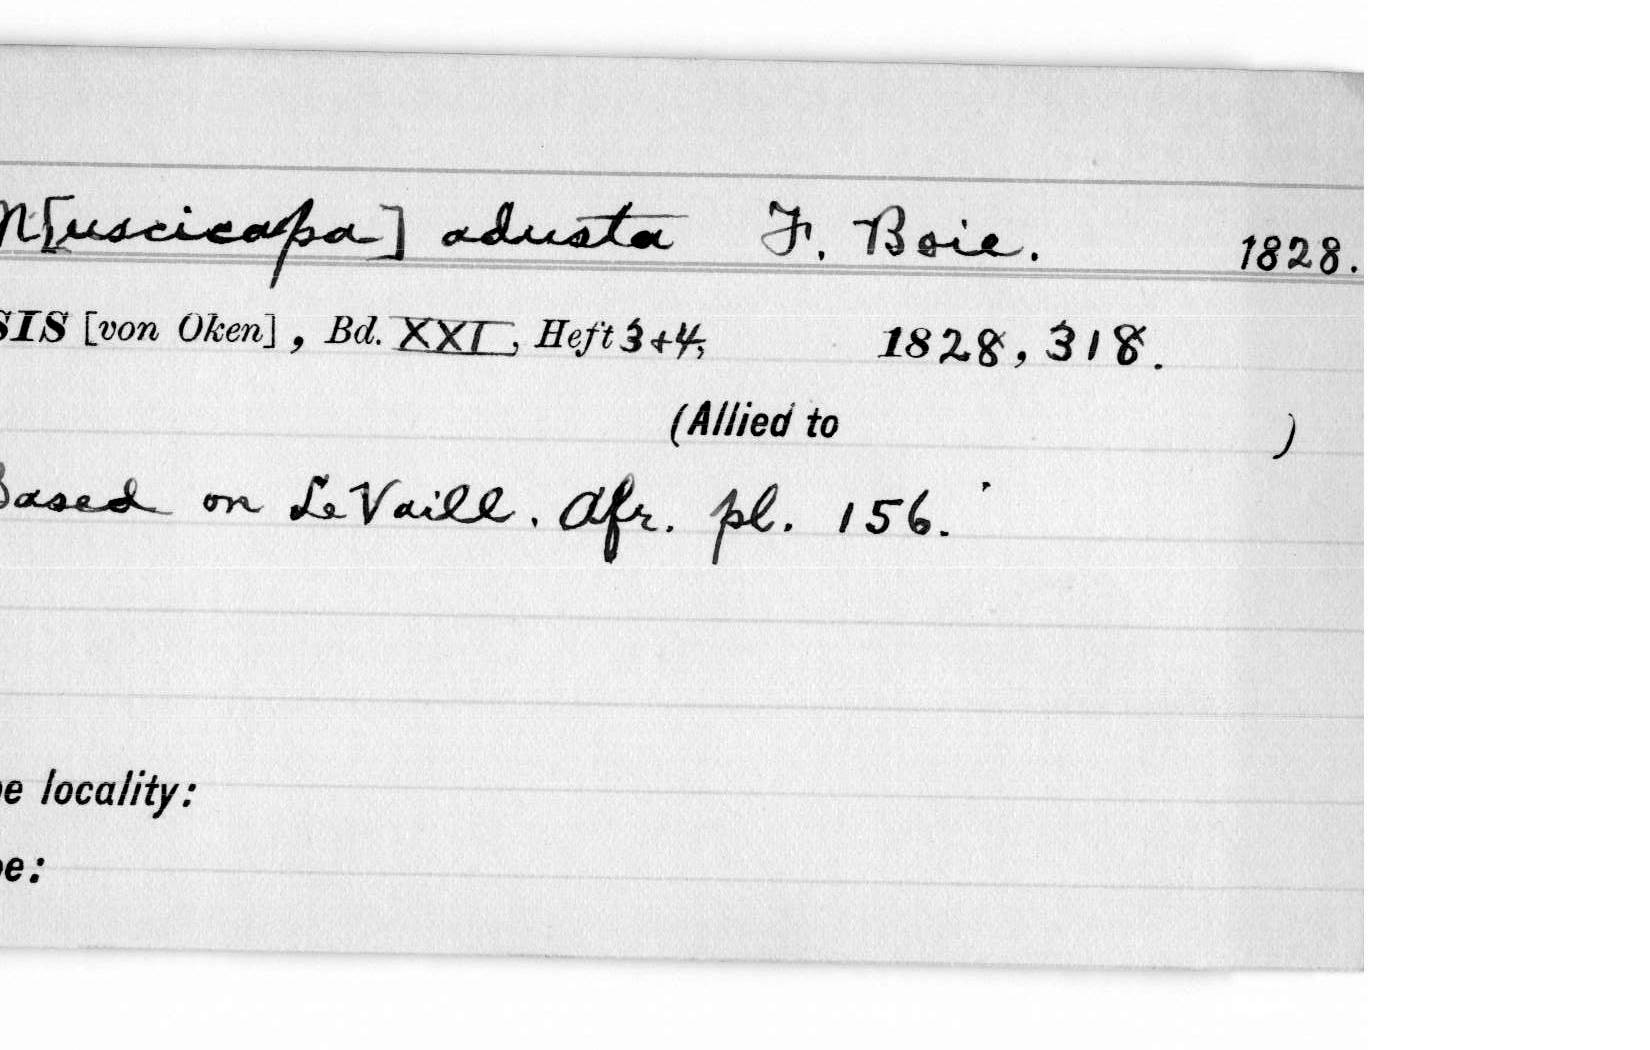 M[uscicapa] adusta F. Boie. 1828.
SIS [von Oken], Bd. XXI, Heft 3+4, 1828, 318.
(Allied to )
Based on LeVaill. Afr. pl. 156.
e locality:
e: